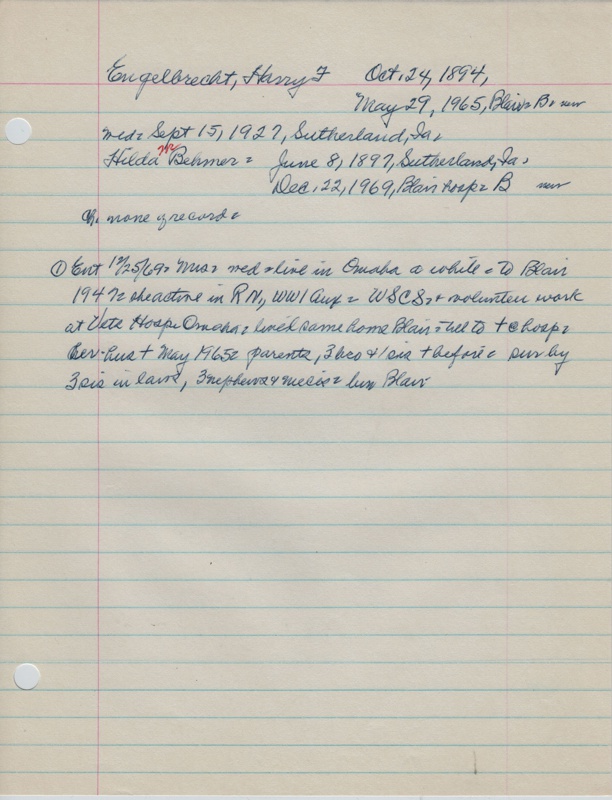 Engelbrecht, Harry F Oct. 24, 1894,
May 29, 1965, Blair= B= new
med= Sept 15, 1927, Sutherland, Ia.
Hilda Behmer= June 8, 1897, Sutherland, Ia.
Dec. 22, 1969, Blair hosp= B new
Ch. none of record=
① Ent 12/25/69= Mrs= med=live in Omaha a while= to Blair
1947= she active in RN, WW1 Aux= WSCS= + volunteer work
at Vets Hosp= Omaha= lived same home Blair= to + @ hosp=
hus + May 1965= parents, 3 bro & 1 sis + before= sur by
3 sis in laws, 3 nephews & nieces= Blair